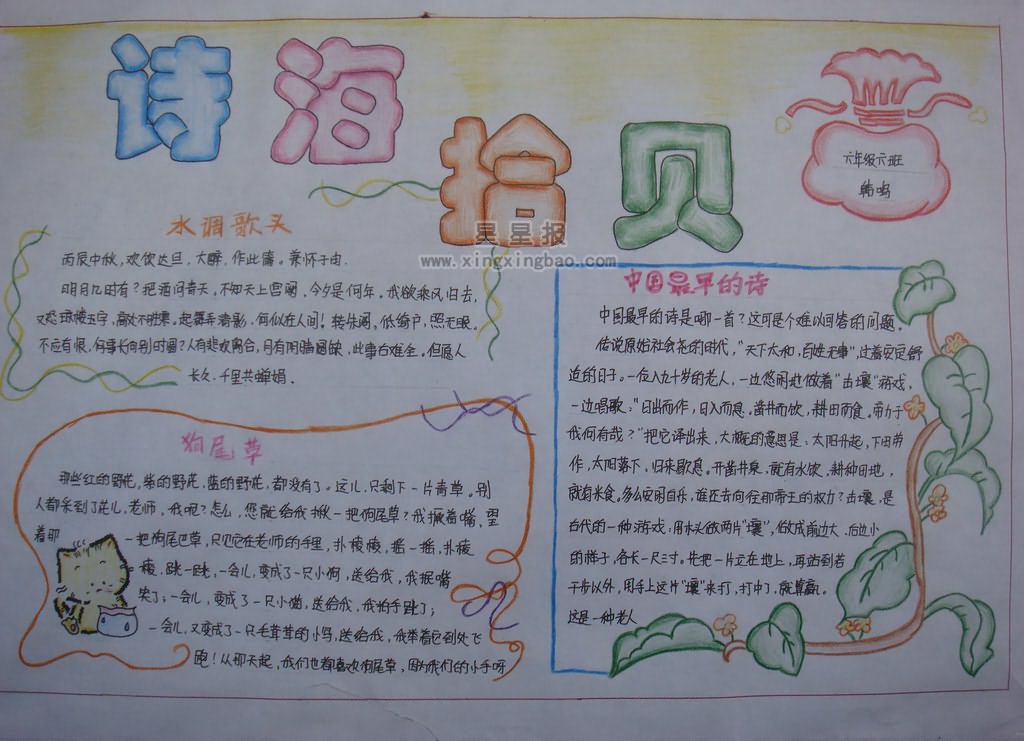 诗海拾贝
六年级六班
韩鸣
昊星报
www.xingxingbao.com
水调歌头
丙辰中秋,欢饮达旦,大醉,作此篇。兼怀子由.
明月几时有?把酒问青天,不知天上宫阙,今夕是何年,我欲乘风归去,
又恐琼楼玉宇,高处不胜寒。起舞弄清影,何似在人间!转朱阁,低绮户,照无眠。
不应有恨,何事长向别时圆?人有悲欢离合,月有阴晴圆缺,此事古难全。但愿人
长久.千里共蝉娟.
狗尾草
那些红的野花,紫的野花,蓝的野花,都没有了。这儿,只剩下一片青草。别
人都采到了花儿,老师,我呢?怎么,您能给我揪一把狗尾草?我撅着嘴,望
着那
一把狗尾巴草,只见它在老师的手里,扑棱棱,摇一摇,扑棱
棱,跳一跳,一会儿,变成了一只小狗,送给我,我抿嘴
笑了;一会儿,变成了一只小猫,送给我,我拍手跳了;
一会儿,又变成了一只毛茸茸的小鸟,送给我,我举着它到处飞
跑!从那天起,我们也都喜欢狗尾草,因为我们的小手呀
中国最早的诗
中国最早的诗是哪一首?这可是个难以回答的问题。
传说原始社会尧的时代,"天下太和,百姓无事",过着安定舒
适的日子。一位八九十岁的老人,一边悠闲地做着"击壤"游戏,
一边唱歌:"日出而作,日入而息。凿井而饮,耕田而食。帝力于
我何有哉?"把它译出来,大概的意思是:太阳升起,下田劳
作,太阳落下,归来歇息。开凿井泉,就有水饮,耕种田地,
就有米食。多么安闲自乐,谁还去向往那帝王的权力?击壤,是
古代的一种游戏:用木头做两片"壤",做成前边大、后边小
的样子,各长一尺三寸。先把一片立在地上,再站到若
干步以外,用手上这片"壤"来打,打中了,就算赢。
这是一种老人